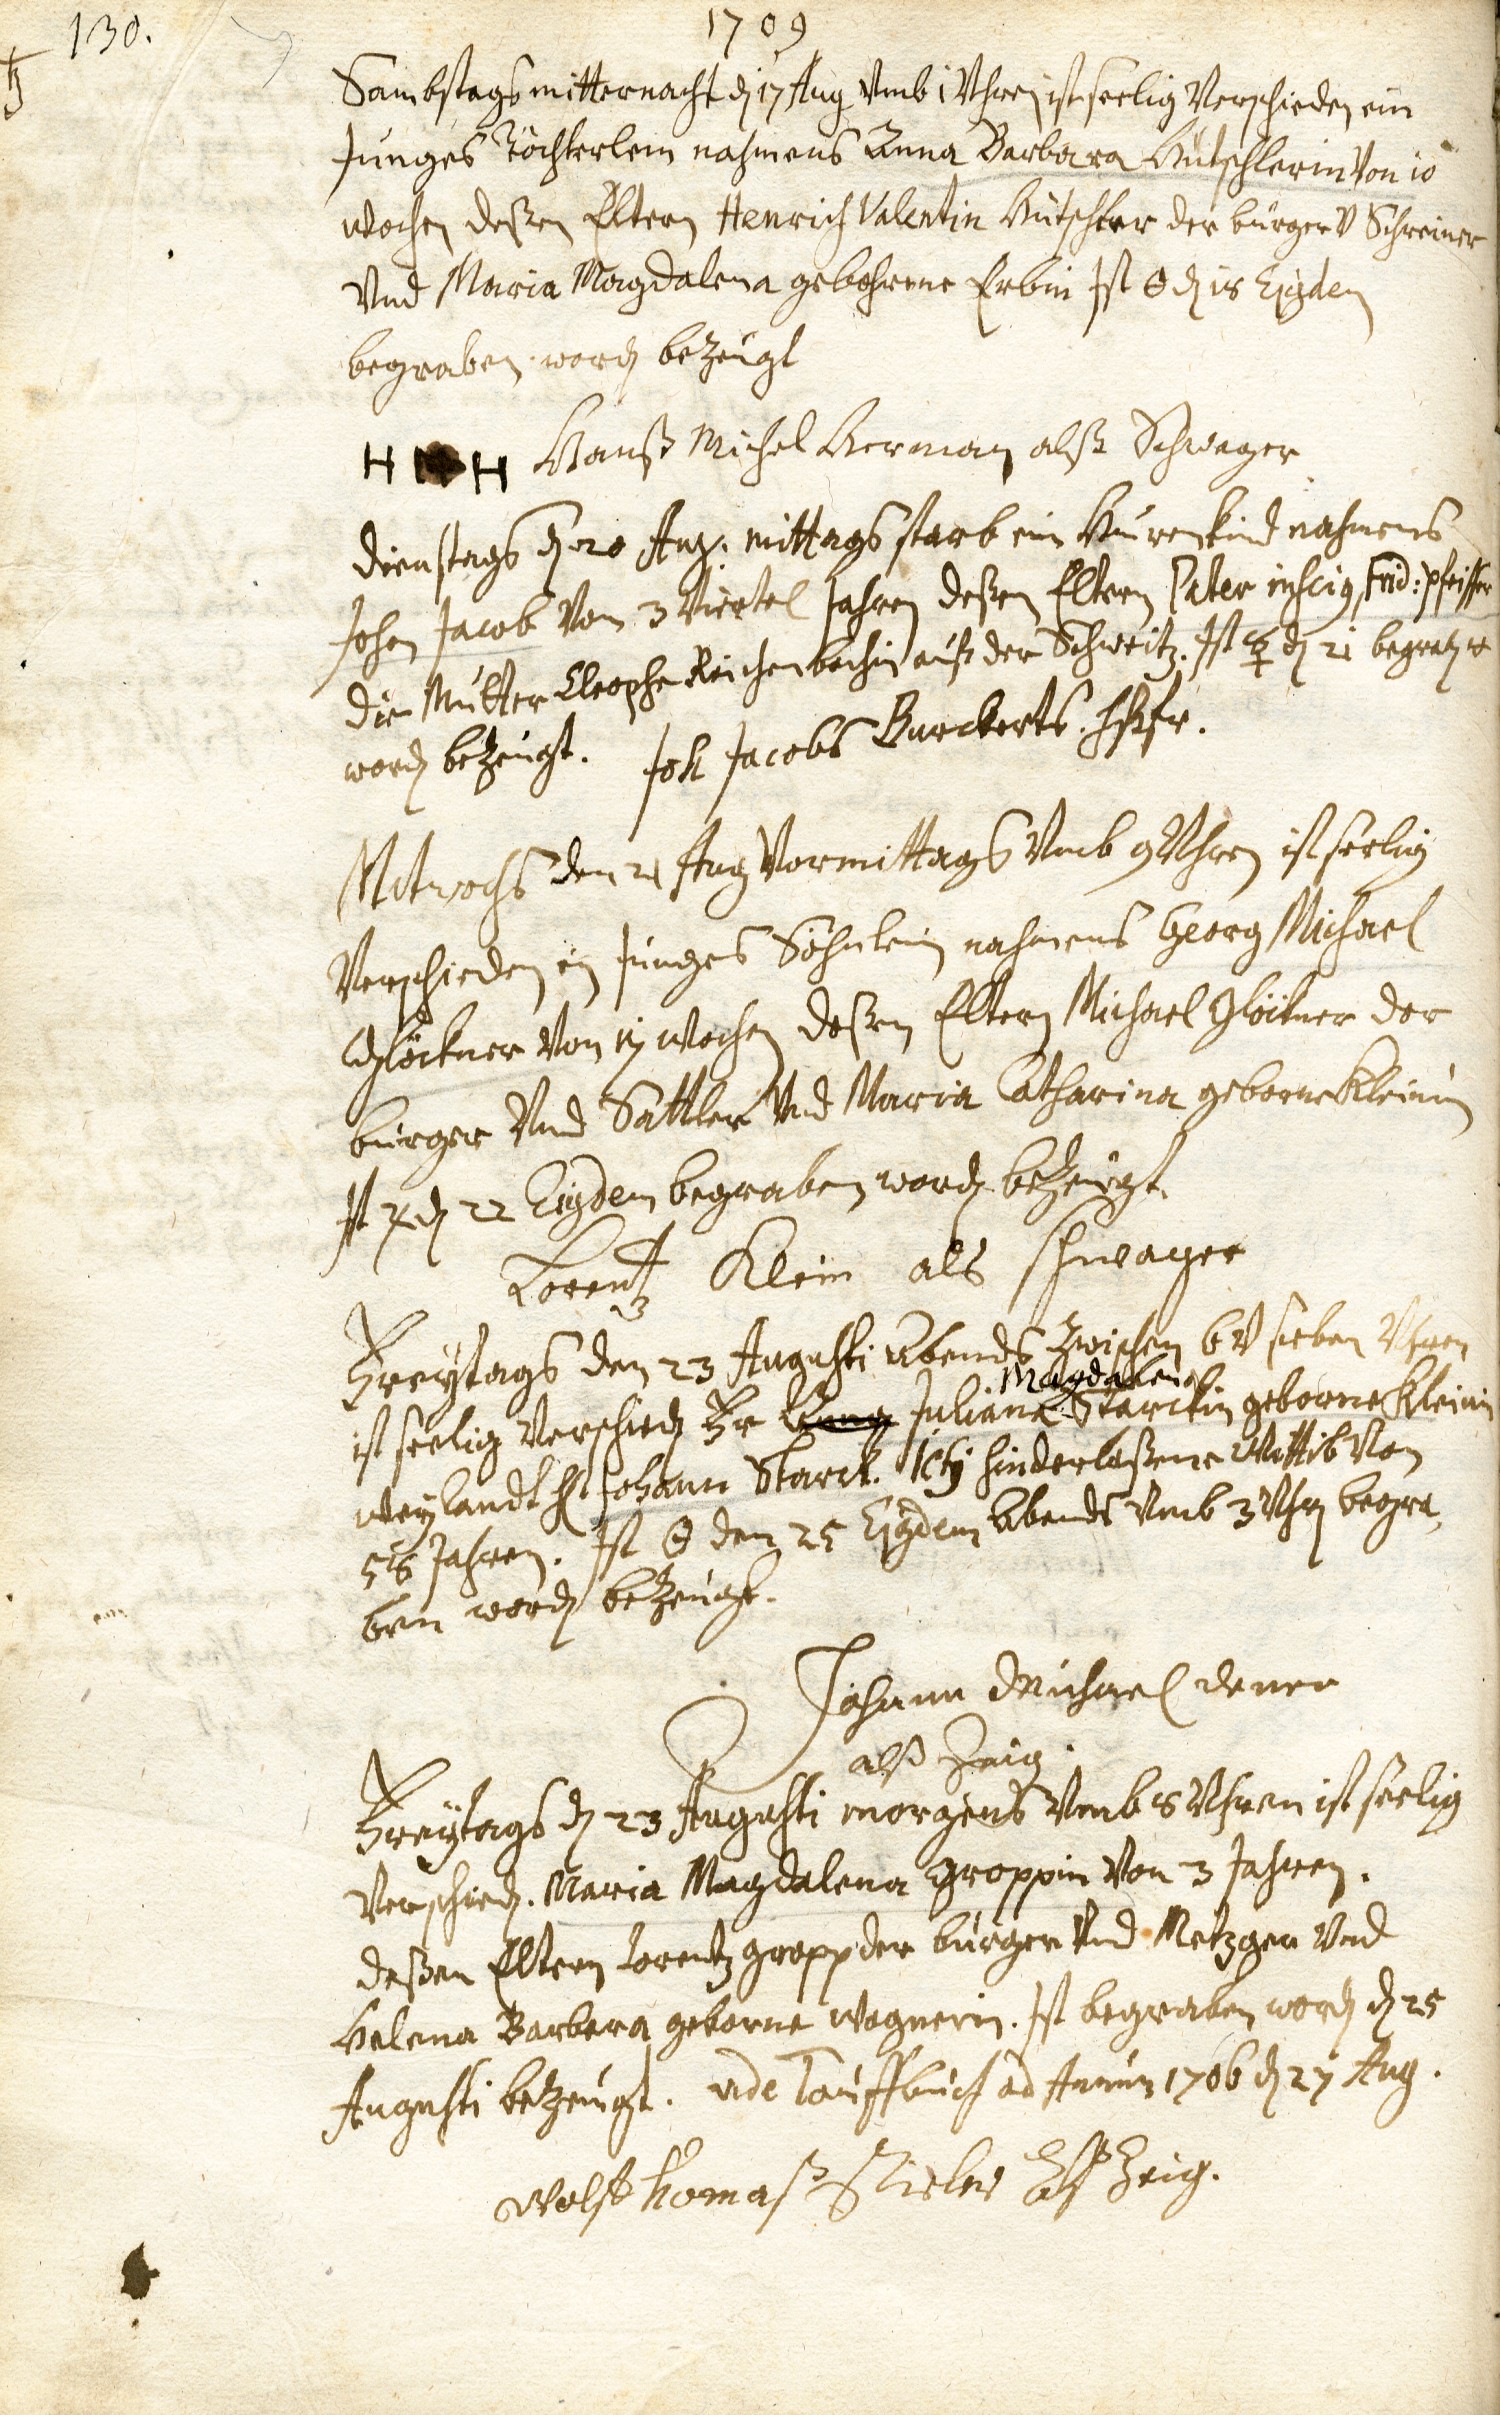 130.
1709
Sambstags mitternacht d 17 Aug Vmb 1 Vhren ist seelig Verschieden ein
Junges Töchterlein nahmens Anna Barbara Hütschlerin Von 10
wochen deßen Eltern Henrich Valentin Hütschler der burger V Schreiner
Vnd Maria Magdalena gebohrene Erbin Ist ☉ d 18 Ejusdem
begraben word bezeugt
H H Hanß Michel Herman alß Schwager
Dienstags d 20 Aug: mittags starb ein Hurenkind nahmens
Johan Jacob Von 3 Viertel Jahren deßen Eltern Pater Frid: Pfeiffer
die Mutter Cleophe Reichenbachin auß der Schweitz. Ist ☿ d 21
word bezeugt. Joh Jacobs Burckerts.
Mitwochs den 21 Aug Vormittags Vmb 9 Vhren ist seelig
Verschieden ein Junges Söhnlein nahmens Georg Michael
Glöckner Von wochen deßen Eltern Michael Glöckner der
burger Vnd Sattler Vnd Maria Catharina geborne Kleinin
Ist ♃ d 22 Ejusdem begraben word bezeugt.
Lorentz Klein als schwager
Freytags den 23 Augusti Abends Zwischen 6 V sieben Vhren
ist seelig Verschied Fr Juliana Magdalena Starckin geborne Kleinin
weylandt H Johann Starck. hinderlaßene Wittib Von
58 Jahren. Ist ☉ den 25 Ejusdem Abends Vmb 3 Vhr begra
ben word bezeugt.
Johann Michael
alß Zeig.
Freytags d 23 Augusti morgens Vmb 8 Vhren ist seelig
Verschied. Maria Magdalena Groppin Von 3 Jahren.
deßen Eltern Lorentz Gropp der burger Vnd Metzger Vnd
Helena Barbara geborne Wagnerin. Ist begraben word d 25
Augusti bezeugt. vide Tauffbuch ad Annum 1706 d 27 Aug.
Zeig.